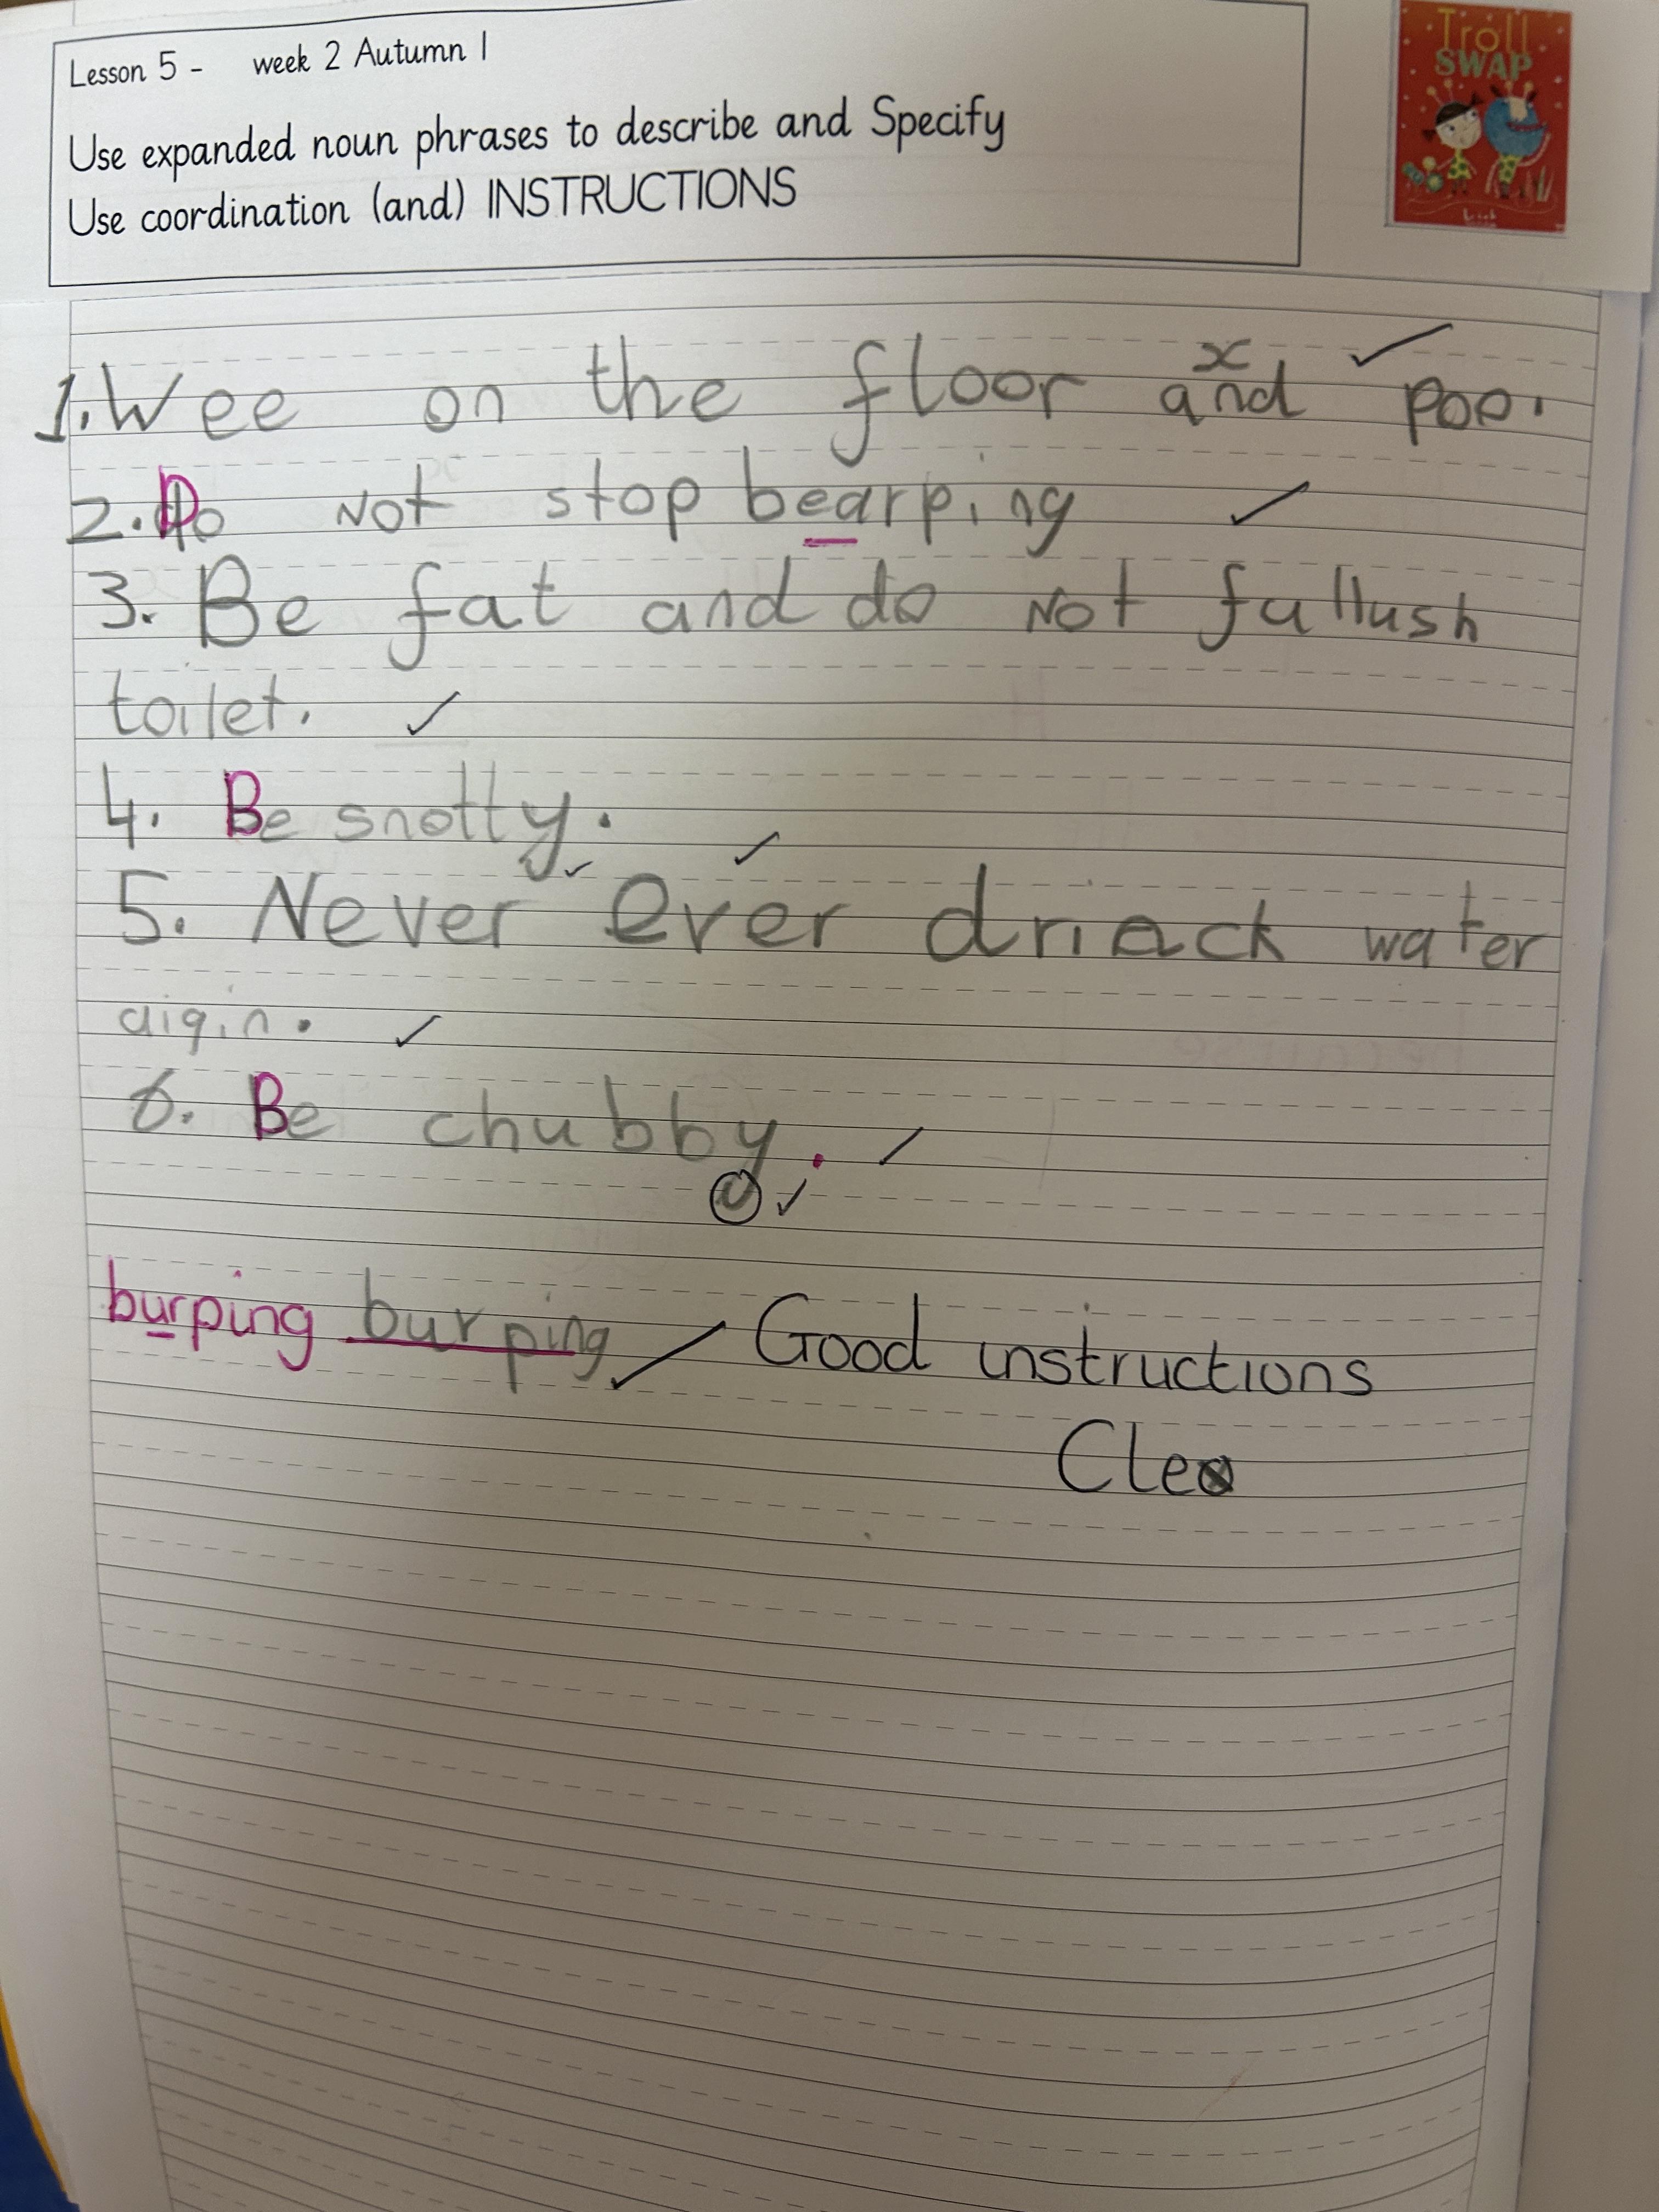 Lesson 5 - week 2 Autumn 1
Use expanded noun phrases to describe and Specify
Use coordination (and) INSTRUCTIONS
Troll
SWAP
x
1. Wee on the floor and poo.
2. Do Not stop bearping
3. Be fat and do Not fullush
toilet.
4. Be snotty.
5. Never Ever drinck water
aigin.
6. Be chubby.
burping burping Good instructions
Cleo